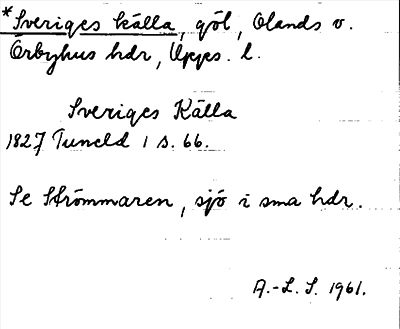 *Sveriges källa, göl, Olands v.
Örbyhus hdr, Upps. l.
Sveriges Källa
1827 Tuneld 1 s. 66.
Se Strömmaren, sjö i sma hdr.
A.-L. S. 1961.